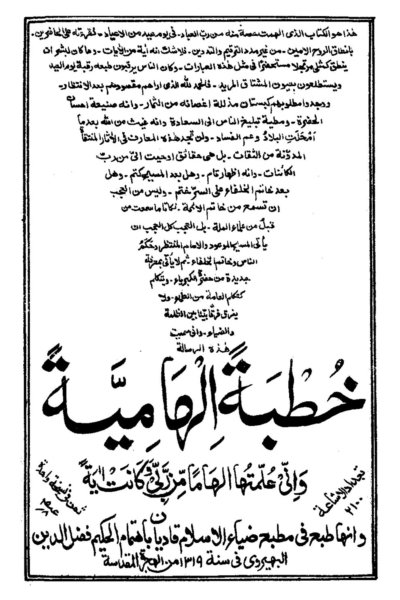 هذا هو الكتاب الذى الهمت حصة منه من رب العباد۔ فى يوم عيد من الاعياد۔ فقرءته على الحاضرين۔
بانطاق الروح الامين۔ من غير مدد الترقيم والتدوين۔ فلا شك انه اية من الايات۔ وما كان لبشر ان
ينطق كمثلى مرتجلا مستحضرا فى مثل هذه العبارات۔ وكان الناس يرقبون طبعه رقبة يوم العيد
ويستطلعون بعيون المشتاق المريد۔ فالحمد لله الذى اراهم مقصودهم بعد الانتظار۔
ووجدوا مطلوبهم كبستان مذللة اغصانه من الثمار۔ وانه صنيعة احسان
الحضرة۔ ومطية تبليغ الناس الى السعادة وانه غيث من الله بعدما
امْحَلَتِ البلادُ وعم الفساد۔ ولن تجد هذه المعارف فى الآثار المنتقاة
المدوّنة من الثقات۔ بل هى حقائق اوحيت الىّ من ربّ
الكائنات۔ وانه اظهار تام۔ وهل بعد المسيح كتم۔ وهل
بعد خاتم الخلفاء على السرّ ختم۔ وليس من العجب
ان تسمع من خاتم الائمة۔ نكاتا ما سمعت من
قبل من علماء الملة۔ بل العجب كل العجب ان
يأتى المسيح الموعود والامام المنتظر وحَكَمُ
الناس وخاتم الخلفاء۔ ثم لا يأتى بمعرفة
جديدة من حضرة الكبرياء۔ ويتكلم
كتكلم العامة من العلماء۔ ولا
يرى فرقا بيّنا بين الظلمة
والضياء۔ وانى سميت
هذه الرسالة
خُطْبَةً اِلْهَامِيَّةً
وَاِنِّى عُلِّمْتُهَا اِلْهَامًا مِّنْ رَّبِّى وَكَانَتْ اٰيَةً
تعداد الاشاعة
٢١٠٠
وانها طبع فى مطبع ضياء الاسلام قاديان باهتمام الحكيم فضل الدين
البهيروى فى سنة ١٣١٩ من الهجرة المقدسة